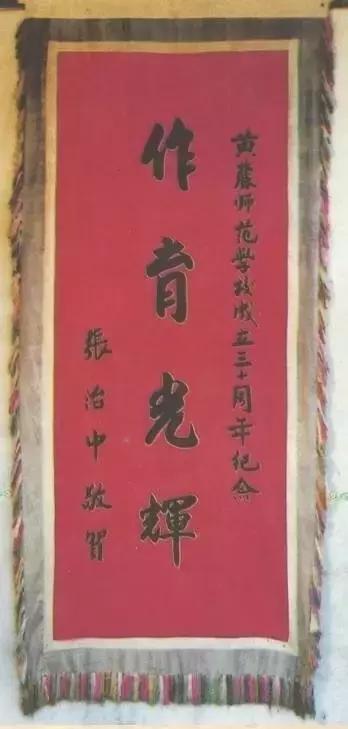 黄麓师范学校成立三十周年纪念
作育光輝
張治中敬賀